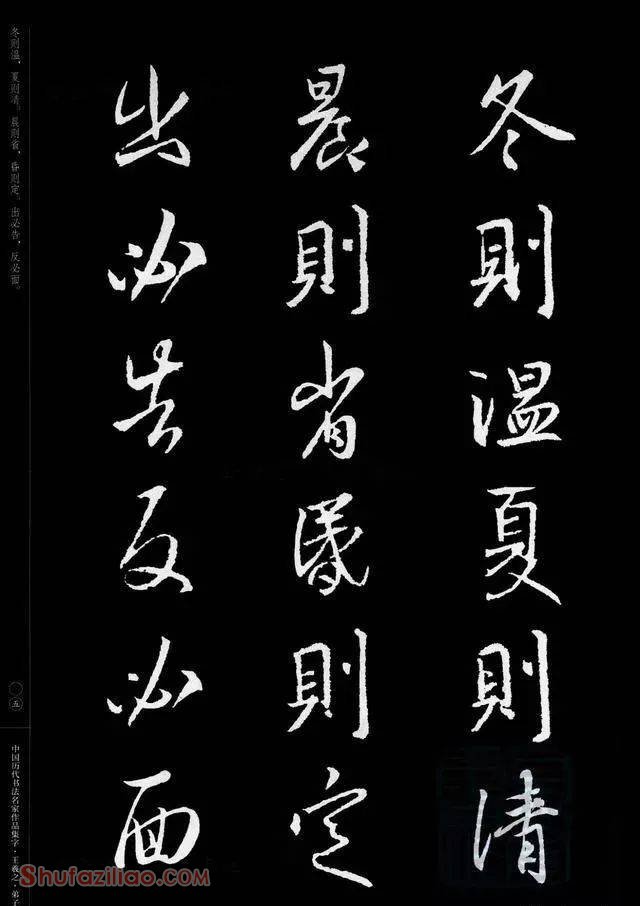 冬則溫夏則清
晨則省昏則定
出必告反必面
冬则温，夏则清。晨则省，昏则定。出必告，反必面。
〇五
中国历代书法名家作品集字·王羲之·弟子
Shufaziliao.com